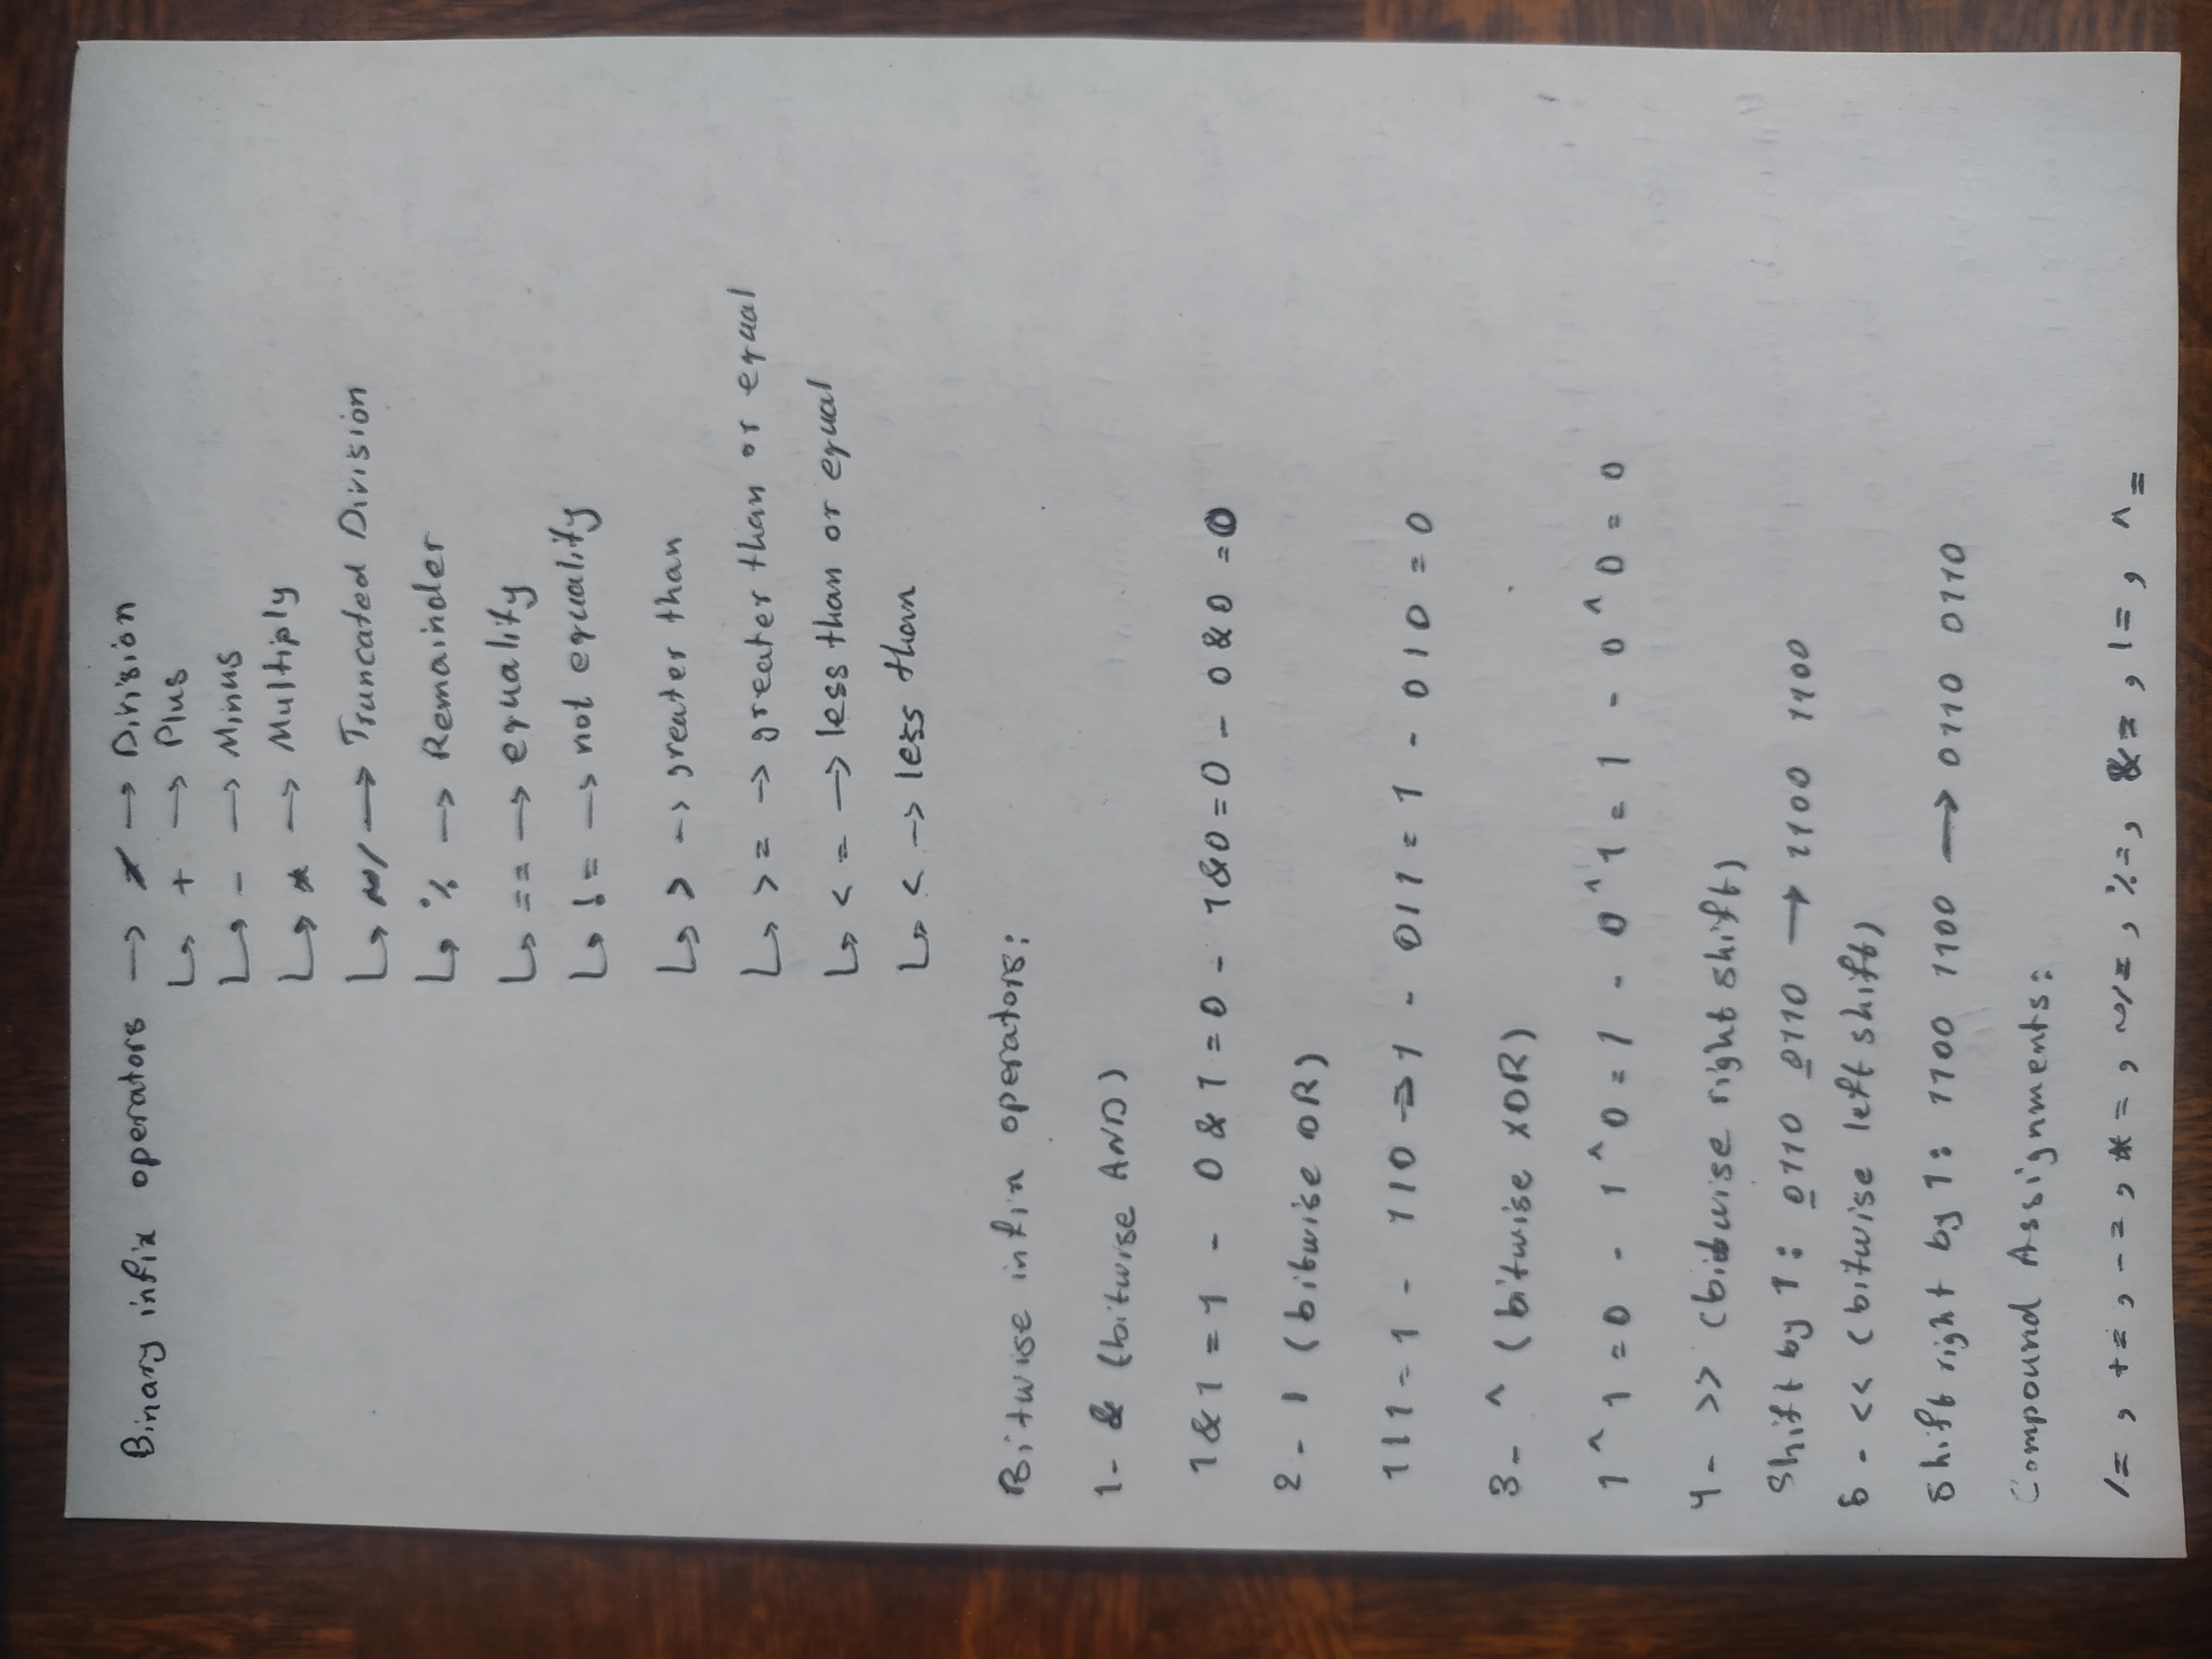 Binary infix operators → / → Division
↳ + → Plus
↳ - → Minus
↳ * → Multiply
↳ ~/ → Truncated Division
↳ % → Remainder
↳ == → equality
↳ != → not equality
↳ > → greater than
↳ >= → greater than or equal
↳ <= → less than or equal
↳ < → less than
Bitwise infix operators:
1- & (bitwise AND)
1&1=1 - 0&1=0 - 1&0=0 - 0&0=0
2- | (bitwise OR)
1|1=1 - 1|0 => 1 - 0|1=1 - 0|0=0
3- ^ (bitwise XOR)
1^1=0 - 1^0=1 - 0^1=1 - 0^0=0
4- >> (bitwise right shift)
Shift by 1: 0110 0110 → 1100 1100
5- << (bitwise left shift)
Shift right by 1: 1100 1100 → 0110 0110
Compound Assignments:
/=, +=, -=, *=, ~/=, %=, &=, |=, ^=